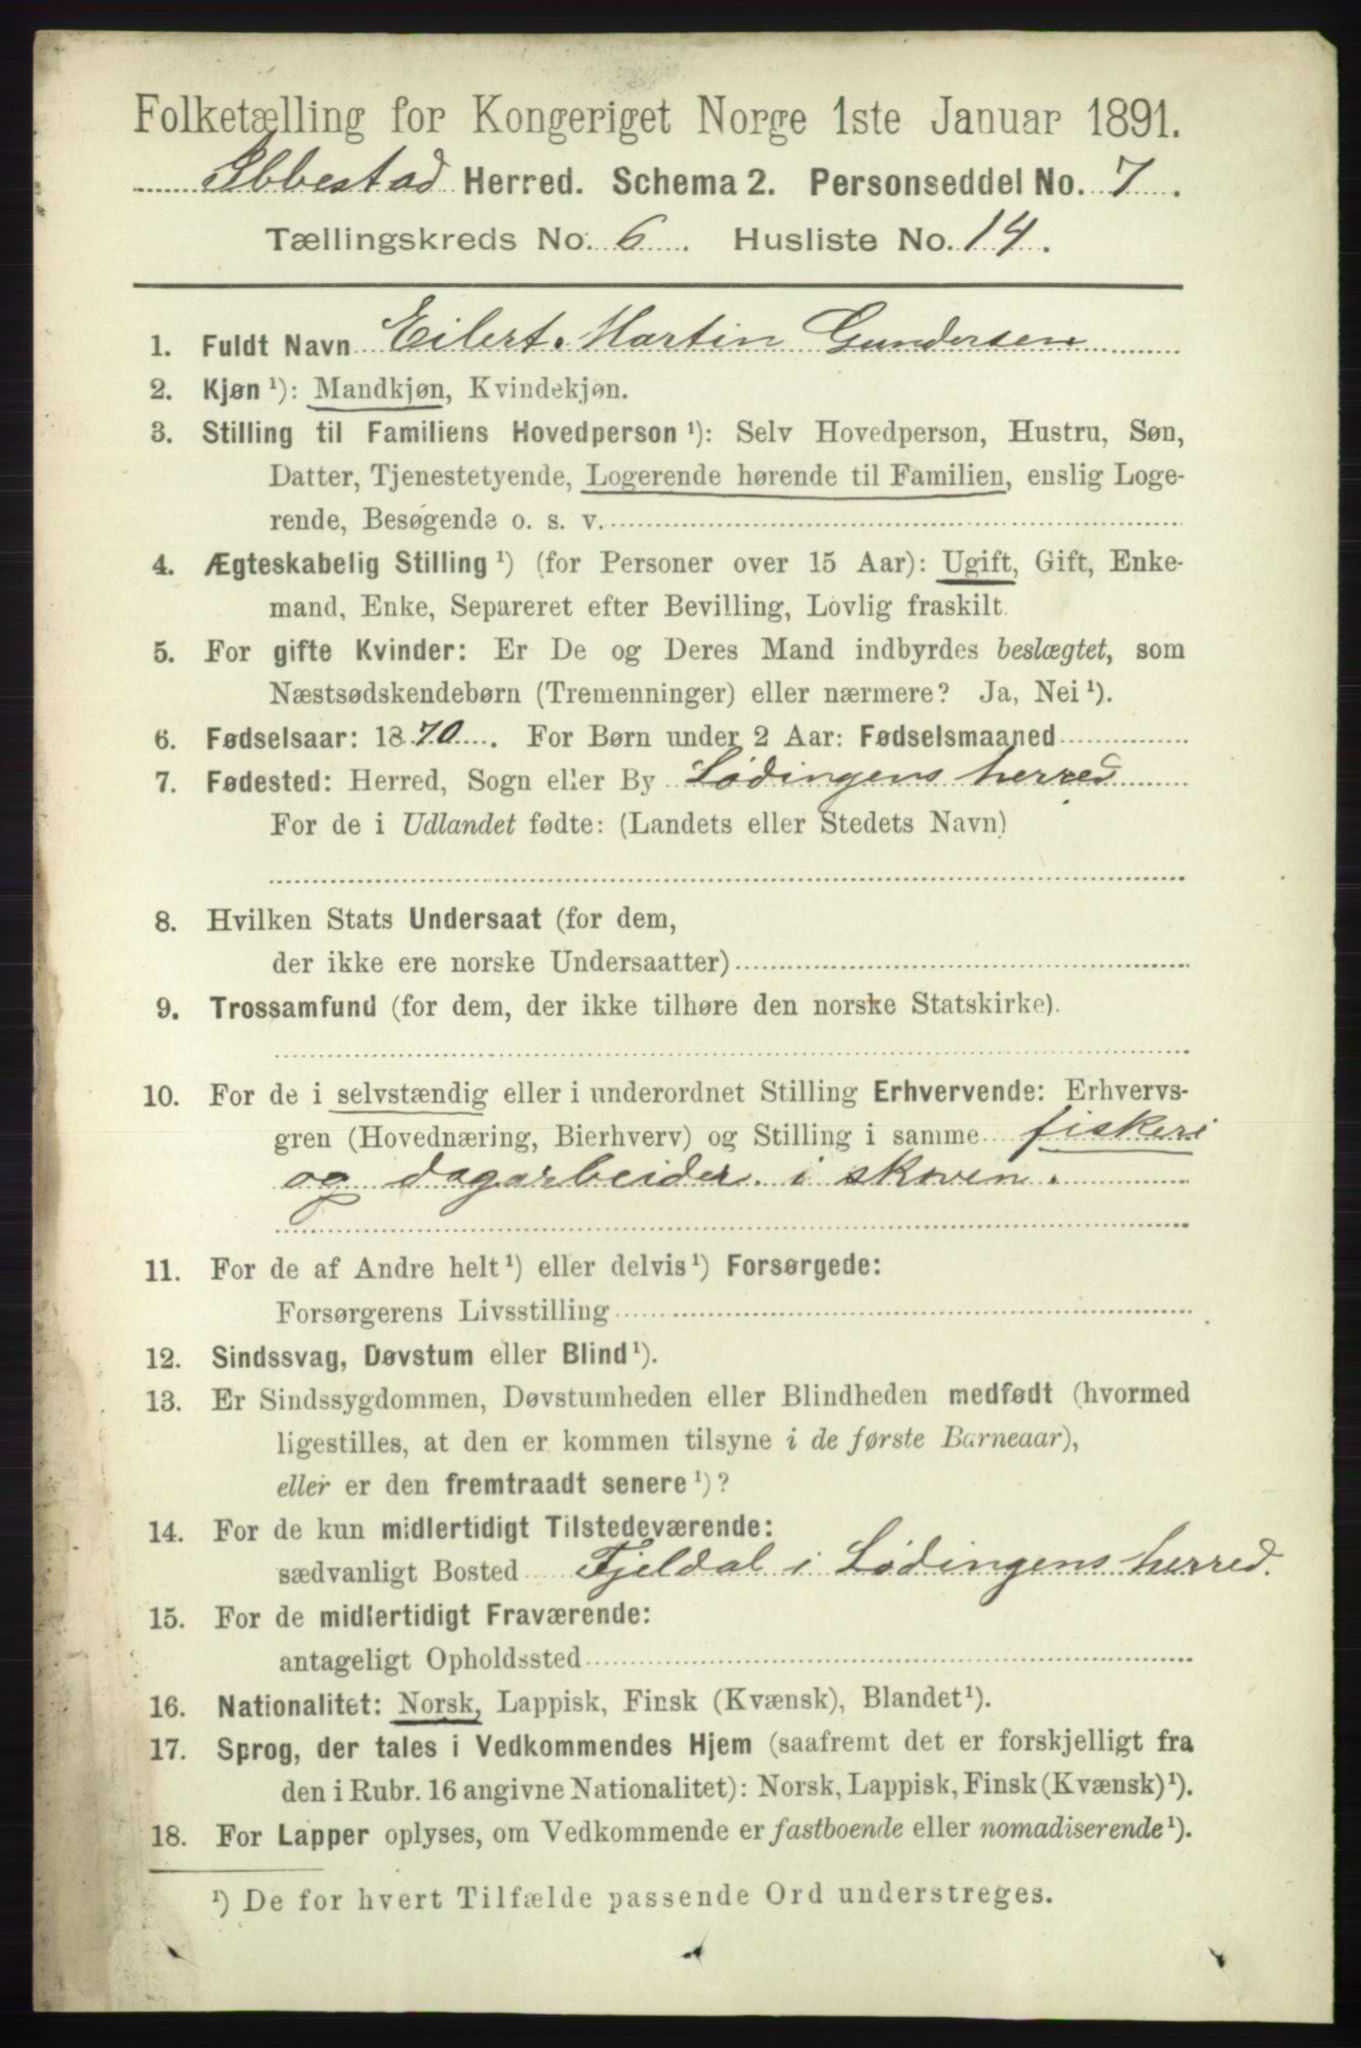 Folketælling for Kongeriget Norge 1ste Januar 1891.
Ibbestad Herred. Schema 2. Personseddel No. 7.
Tællingskreds No. 6. Husliste No. 14.
1. Fuldt Navn Eilert Martin Gundersen
2. Kjøn ¹): Mandkjøn, Kvindekjøn.
3. Stilling til Familiens Hovedperson ¹): Selv Hovedperson, Hustru, Søn,
Datter, Tjenestetyende, Logerende hørende til Familien, enslig Loge-
rende, Besøgende o. s. v.
4. Ægteskabelig Stilling ¹) (for Personer over 15 Aar): Ugift, Gift, Enke-
mand, Enke, Separeret efter Bevilling, Lovlig fraskilt.
5. For gifte Kvinder: Er De og Deres Mand indbyrdes beslægtet, som
Næstsødskendebørn (Tremenninger) eller nærmere? Ja, Nei ¹).
6. Fødselsaar: 1870. For Børn under 2 Aar: Fødselsmaaned
7. Fødested: Herred, Sogn eller By Lødingens herred
For de i Udlandet fødte: (Landets eller Stedets Navn)
8. Hvilken Stats Undersaat (for dem,
der ikke ere norske Undersaatter)
9. Trossamfund (for dem, der ikke tilhøre den norske Statskirke).
10. For de i selvstændig eller i underordnet Stilling Erhvervende: Erhvervs-
gren (Hovednæring, Bierhverv) og Stilling i samme fiskeri
og dagarbeider i skoven.
11. For de af Andre helt ¹) eller delvis ¹) Forsørgede:
Forsørgerens Livsstilling
12. Sindssvag, Døvstum eller Blind ¹).
13. Er Sindssygdommen, Døvstumheden eller Blindheden medfødt (hvormed
ligestilles, at den er kommen tilsyne i de første Barneaar),
eller er den fremtraadt senere ¹)?
14. For de kun midlertidigt Tilstedeværende:
sædvanligt Bosted Fjeldal i Lødingens herred.
15. For de midlertidigt Fraværende:
antageligt Opholdssted
16. Nationalitet: Norsk, Lappisk, Finsk (Kvænsk), Blandet ¹).
17. Sprog, der tales i Vedkommendes Hjem (saafremt det er forskjelligt fra
den i Rubr. 16 angivne Nationalitet): Norsk, Lappisk, Finsk (Kvænsk) ¹).
18. For Lapper oplyses, om Vedkommende er fastboende eller nomadiserende ¹).
¹) De for hvert Tilfælde passende Ord understreges.